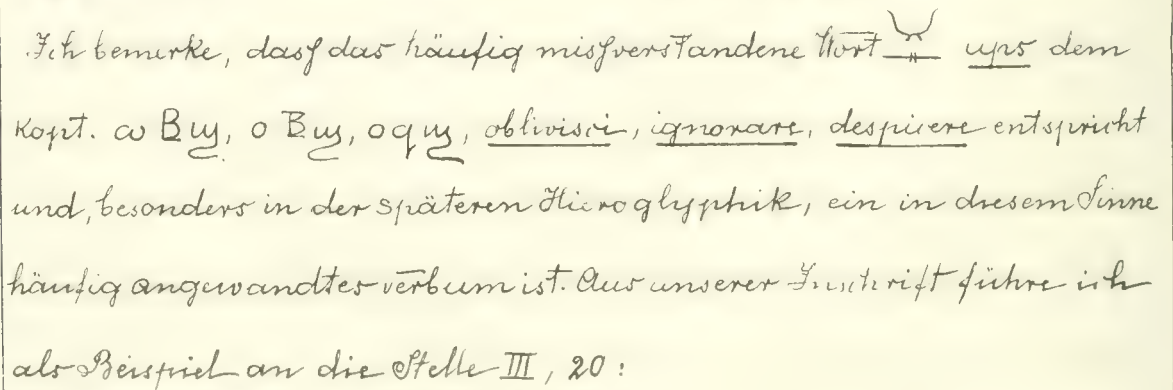 Ich bemerke, dass das häufig missverstandene Wort 𓄋𓊃 ups dem
Kopt. ωΒϣ, οΒϣ, οϥϣ, oblivisci, ignorare, despicere entspricht
und, besonders in der späteren Hieroglyphik, ein in diesem Sinne
häufig angewandtes verbum ist. Aus unserer Inschrift führe ich
als Beispiel an die Stelle III, 20: